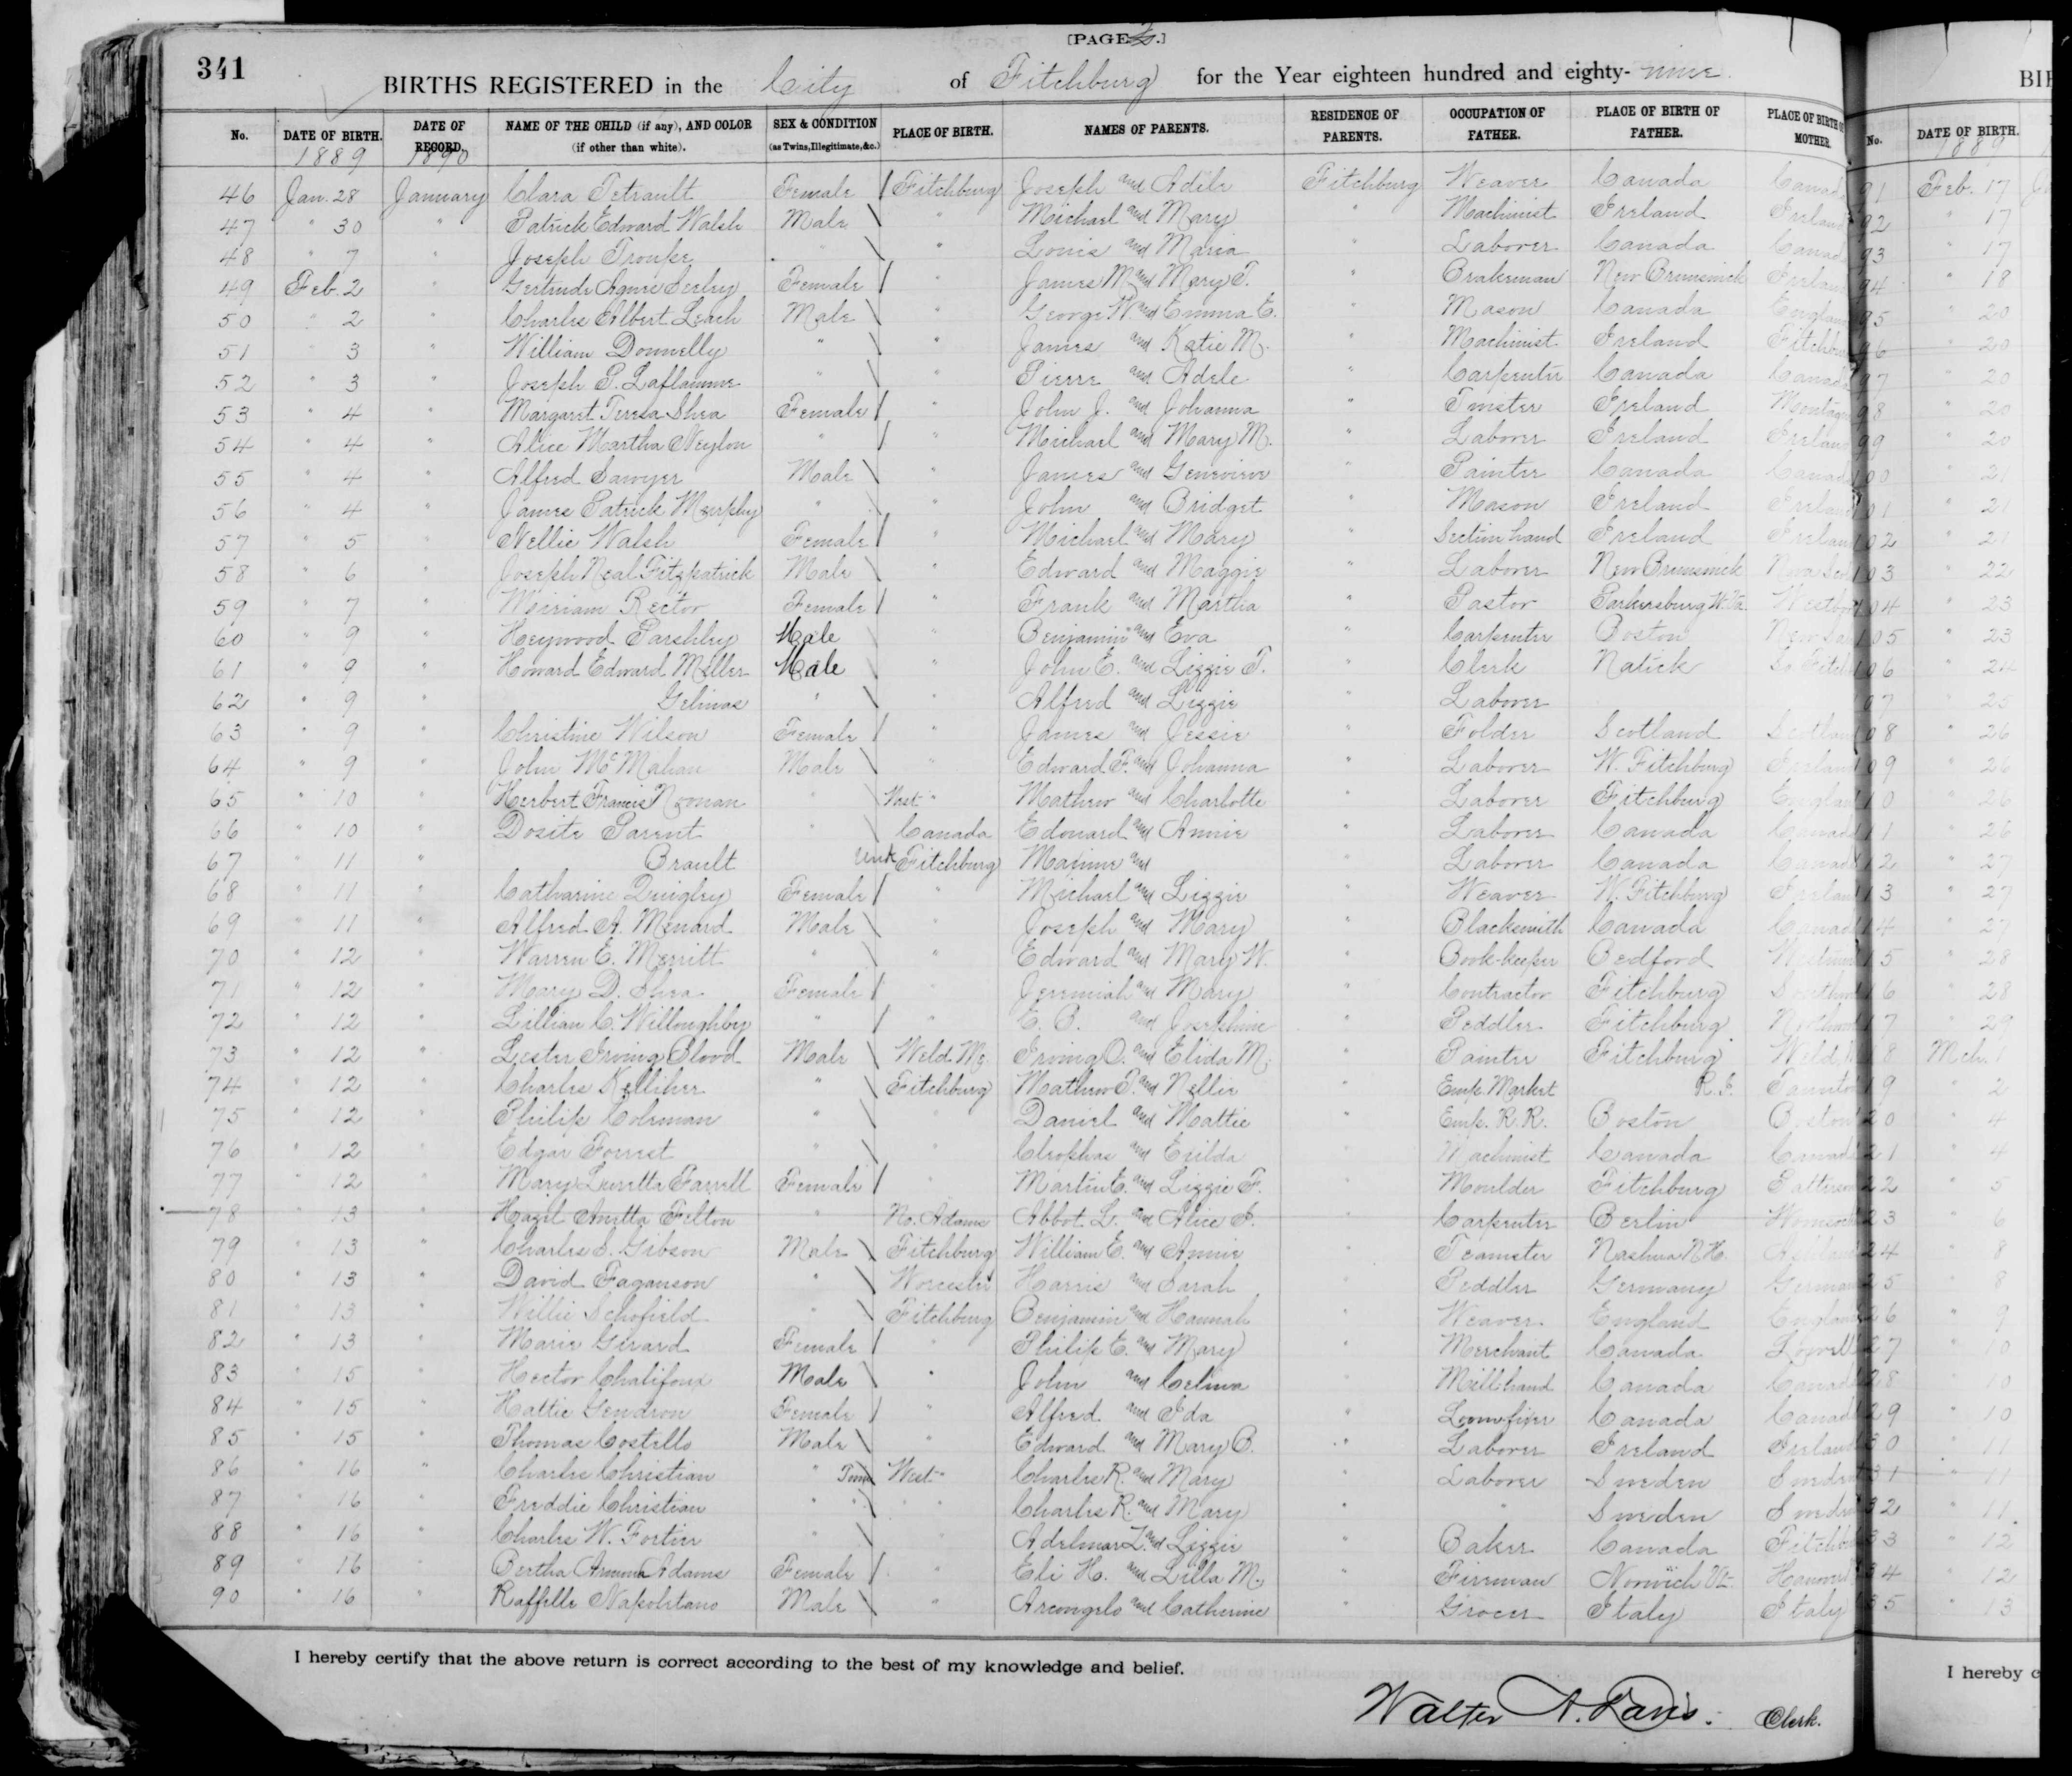 [PAGE 2.]
341
BIRTHS REGISTERED in the City of Fitchburg for the Year eighteen hundred and eighty- nine.
No. DATE OF BIRTH. 1889 DATE OF RECORD. 1890 NAME OF THE CHILD (if any), AND COLOR (if other than white). SEX & CONDITION (as Twins, Illegitimate, &c.) PLACE OF BIRTH. NAMES OF PARENTS. RESIDENCE OF PARENTS. OCCUPATION OF FATHER. PLACE OF BIRTH OF FATHER. PLACE OF BIRTH OF MOTHER.
46 Jan. 28 January Clara Tetrault Female Fitchburg Joseph and Adele Fitchburg Weaver Canada Canad
47 " 30 " Patrick Edward Walsh Male " Michael and Mary " Machinist Ireland Ireland
48 " 7 " Joseph Troupe " " Louis and Maria " Laborer Canada Canad
49 Feb. 2 " Gertrude Agnes Seeley Female " James M. and Mary T. " Brakeman New Brunswick Irelan
50 " 2 " Charles Albert Leach Male " George W. and Emma E. " Mason Canada England
51 " 3 " William Donnelly " " James and Katie M. " Machinist Ireland Fitchbu
52 " 3 " Joseph P. Laflamme " " Pierre and Adele " Carpenter Canada Canad
53 " 4 " Margaret Teresa Shea Female " John J. and Johanna " Tinster Ireland Montagu
54 " 4 " Alice Martha Neylon " " Michael and Mary M. " Laborer Ireland Irelan
55 " 4 " Alfred Sawyer Male " James and Genevieve " Painter Canada Canad
56 " 4 " James Patrick Murphy " " John and Bridget " Mason Ireland Irelan
57 " 5 " Nellie Walsh Female " Michael and Mary " Section hand Ireland Irelan
58 " 6 " Joseph Neal Fitzpatrick Male " Edward and Maggie " Laborer New Brunswick Nova Sco
59 " 7 " Miriam Rector Female " Frank and Martha " Pastor Parkersburg W. Va. Westbo
60 " 9 " Heywood Parshley Male " Benjamin and Eva " Carpenter Boston
61 " 9 " Howard Edward Miller Male " John E. and Lizzie T. " Clerk Natick So Fitch
62 " 9 " Gelinas " " Alfred and Lizzie " Laborer
63 " 9 " Christine Wilson Female " James and Jessie " Folder Scotland Scotlan
64 " 9 " John McMahan Male " Edward F. and Johanna " Laborer W. Fitchburg Irelan
65 " 10 " Herbert Francis Noonan " West " Mathew and Charlotte " Laborer Fitchburg Englan
66 " 10 " Dosite Parent " Canada Edouard and Annie " Laborer Canada Canad
67 " 11 " Brault Unk Fitchburg Maxime and " Laborer Canada Canad
68 " 11 " Catharine Quigley Female " Michael and Lizzie " Weaver W. Fitchburg Irelan
69 " 11 " Alfred A. Menard Male " Joseph and Mary " Blacksmith Canada Canad
70 " 12 " Warren E. Merritt " " Edward and Mary W. " Book-keeper Bedford
71 " 12 " Mary D. Shea Female " Jeremiah and Mary " Contractor Fitchburg
72 " 12 " Lillian C. Willoughby " " E. B. and Josephine " Peddler Fitchburg
73 " 12 " Lester Irving Blood Male Weld Me. Irving O. and Elida M. " Painter Fitchburg Weld
74 " 12 " Charles Kelliher " Fitchburg Mathew T. and Nellie " Emp. Market R.I. Taunto
75 " 12 " Philip Coleman " " Daniel and Mattie " Emp. R.R. Boston Boston
76 " 12 " Edgar Forrest " " Cleophas and Exilda " Machinist Canada Canad
77 " 12 " Mary Luretta Farrell Female " Martin E. and Lizzie F. " Moulder Fitchburg Patterson
78 " 13 " Hazel Anetta Felton " No. Adams Abbot L. and Alice J. " Carpenter Berlin Woonsock
79 " 13 " Charles S. Gibson Male Fitchburg William E. and Annie " Teamster Nashua N.H. Ashland
80 " 13 " David Faganson " Worcester Harris and Sarah " Peddler Germany German
81 " 13 " Willie Schofield " Fitchburg Benjamin and Hannah " Weaver England England
82 " 13 " Marie Girard Female " Philip E. and Mary " Merchant Canada Lowell
83 " 15 " Hector Chalifoux Male " John and Celina " Millhand Canada Canad
84 " 15 " Hattie Gendron Female " Alfred and Ida " Loomfixer Canada Canad
85 " 15 " Thomas Costello Male " Edward and Mary B. " Laborer Ireland Irelan
86 " 16 " Charles Christian " Twin West " Charles R. and Mary " Laborer Sweden Sweden
87 " 16 " Freddie Christian " " " Charles R. and Mary " " Sweden Sweden
88 " 16 " Charles W. Fortier " " Adelmar Z. and Lizzie " Baker Canada Fitchb
89 " 16 " Bertha Ammna Adams Female " Eli H. and Lilla M. " Fireman Norwich Vt. Hanove
90 " 16 " Raffelle Napolitano Male " Arcongelo and Catherine " Grocer Italy Italy
I hereby certify that the above return is correct according to the best of my knowledge and belief.
Walter A. Davis. Clerk.
BIR
No. DATE OF BIRTH. 1889
91 Feb. 17
92 " 17
93 " 17
94 " 18
95 " 20
96 " 20
97 " 20
98 " 20
99 " 20
100 " 21
101 " 21
102 " 21
103 " 22
104 " 23
105 " 23
106 " 24
07 " 25
08 " 26
09 " 26
10 " 26
11 " 26
12 " 27
13 " 27
14 " 27
15 " 28
16 " 28
17 " 29
18 Mch. 1
19 " 2
20 " 4
21 " 4
22 " 5
23 " 6
24 " 8
25 " 8
26 " 9
27 " 10
28 " 10
29 " 10
30 " 11
31 " 11
32 " 11
33 " 12
34 " 12
35 " 13
I hereby c